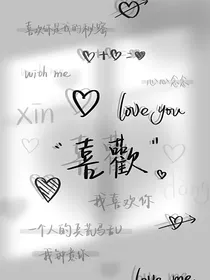 喜欢你是我的秘密
with me
xīn
love you
"喜歡"
我喜欢你
一个人的兵荒马乱
我钟意你
love me